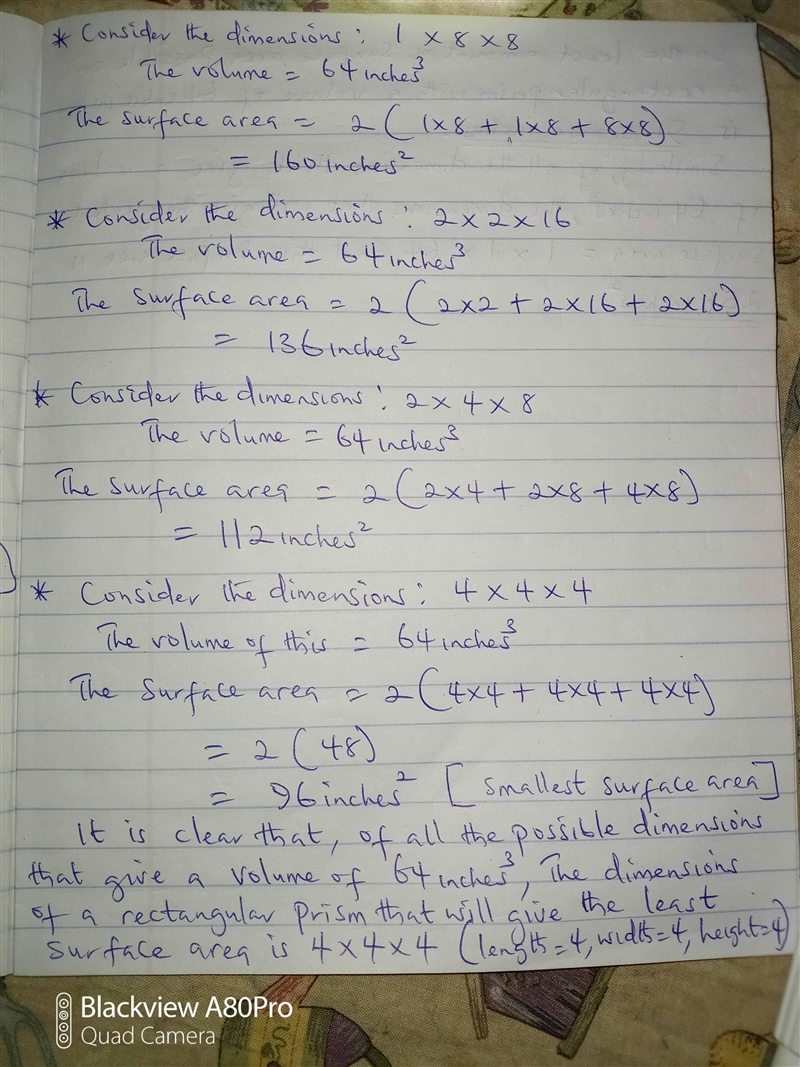 * Consider the dimensions: 1 × 8 × 8
The volume = 64 inches³
The surface area = 2 (1×8 + 1×8 + 8×8)
= 160 inches²
* Consider the dimensions: 2 × 2 × 16
The volume = 64 inches³
The surface area = 2 (2×2 + 2×16 + 2×16)
= 136 inches²
* Consider the dimensions: 2 × 4 × 8
The volume = 64 inches³
The surface area = 2 (2×4 + 2×8 + 4×8)
= 112 inches²
* Consider the dimensions: 4 × 4 × 4
The volume of this = 64 inches³
The Surface area = 2 (4×4 + 4×4 + 4×4)
= 2 (48)
= 96 inches² [smallest surface area]
It is clear that, of all the possible dimensions
that give a volume of 64 inches³, The dimensions
of a rectangular prism that will give the least
surface area is 4×4×4 (length=4, width=4, height=4)
Blackview A80Pro
Quad Camera